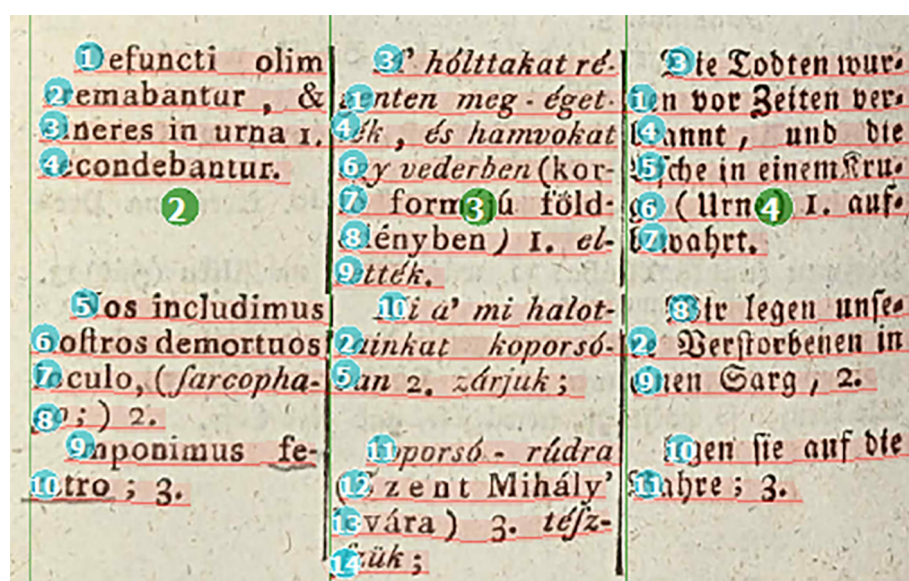 Defuncti olim
cremabantur , &
cineres in urna 1.
recondebantur.
Nos includimus
nostros demortuos
loculo, (ſarcopha-
go ;) 2.
Imponimus fe-
retro ; 3.
A' hólttakat ré-
genten meg - éget-
ték , és hamvokat
egy vederben (kor-
formájú föld-
edényben) 1. el-
tették.
Mi a' mi halot-
tainkat koporsó-
ban 2. zárjuk ;
Koporsó - rúdra
(Szent Mihály'
lovára) 3. téſz-
ſzük ;
Die Todten wur-
den vor Zeiten ver-
brannt , und die
Aſche in einem Kru-
ge (Urne) 1. auf-
bewahrt.
Wir legen unſe-
re Verſtorbenen in
einen Sarg , 2.
legen ſie auf die
Bahre ; 3.